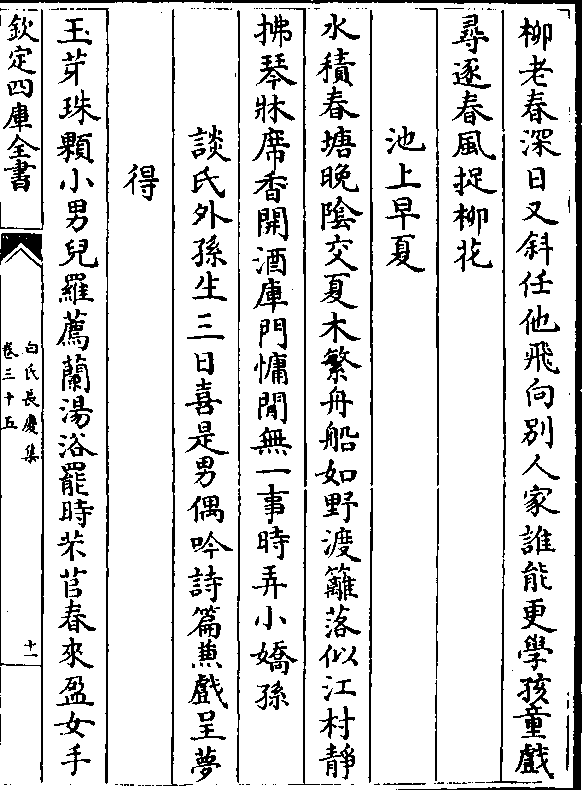 柳老春深日又斜任他飛向別人家誰能更學孩童戲
尋逐春風捉柳花
池上早夏
水積春塘晚陰交夏木繁舟船如野渡籬落似江村靜
拂琴牀席香開酒庫門慵閒無一事時弄小嬌孫
談氏外孫生三日喜是男偶吟詩篇兼戲呈夢
得
玉芽珠顆小男兒羅薦蘭湯浴罷時芣苢春來盈女手
欽定四庫全書
白氏長慶集
卷三十五
十一